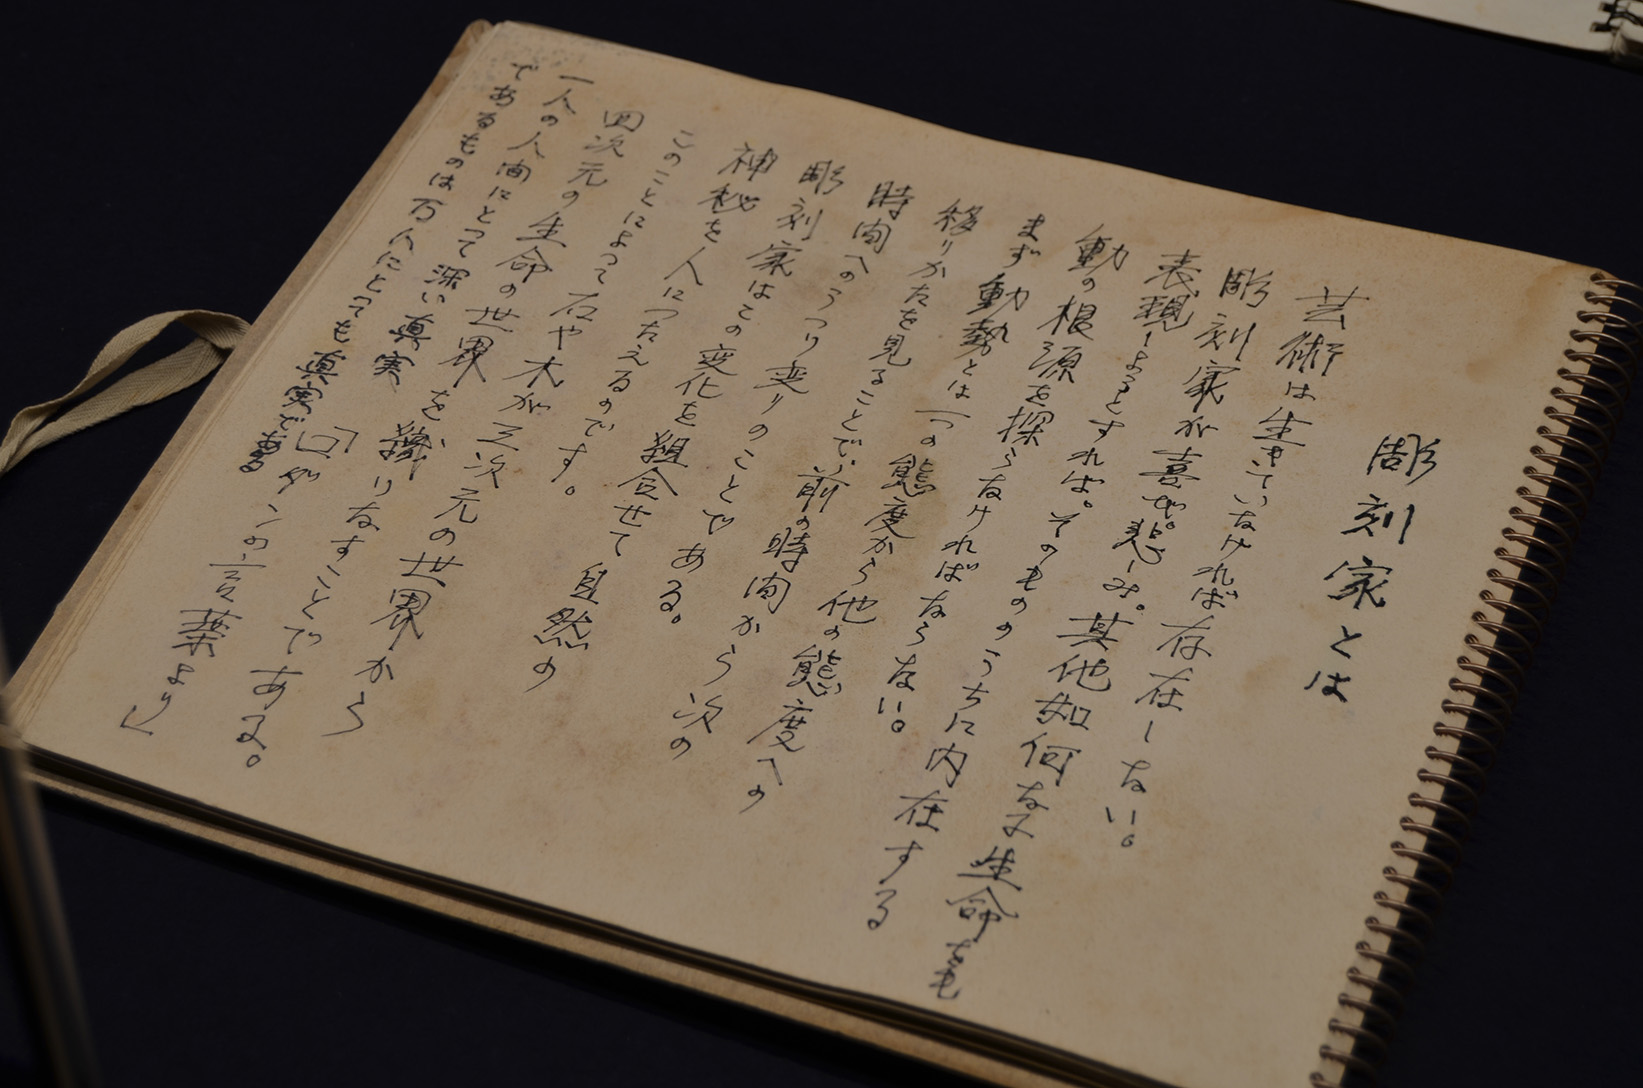 彫刻家とは
芸術は生きていなければ存在しない。
彫刻家が喜び。悲しみ。其他如何なる生命をも
表現しようとすれば。そのもののうちに内在する
動の根源を探らなければならない。
まず動勢とは一つの態度から他の態度への
移りかたを見ることで、前の時間から次の
時間へのうつり変りのことである。
彫刻家はこの変化を組合せて自然の
神秘を人につたえるのです。
このことによって石や木が三次元の世界から
四次元の生命の世界を織りなすことである。
一人の人間にとって深い真実
であるものは万人にとっても真実である
「ロダンの言葉より」